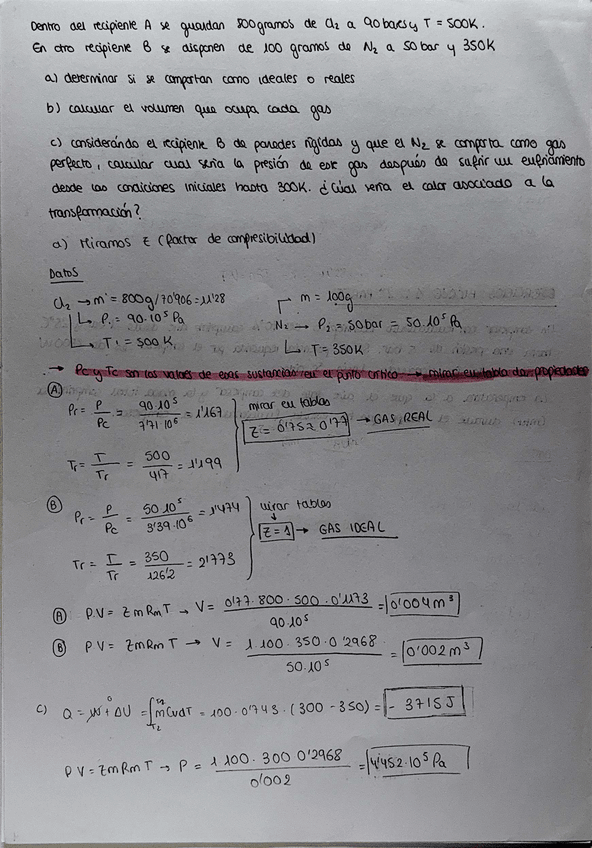 Dentro del recipiente A se guardan 800gramos de Cl2 a 90bares y T = 500K.
En otro recipiente B se disponen de 100 gramos de N2 a 50 bar y 350K
a) determinar si se comportan como ideales o reales
b) calcular el volumen que ocupa cada gas
c) considerando el recipiente B de paredes rígidas y que el N2 se comporta como gas
perfecto, calcular cual sería la presión de este gas después de sufrir un enfriamiento
desde las condiciones iniciales hasta 300K. ¿Cuál sería el calor asociado a la
transformación?
a) Miramos Z (factor de compresibilidad)
Datos
Cl2 → m = 800g/70'906 = 11'28
↳ P1 = 90·10⁵ Pa
↳ T = 500K
m = 100g
N2 → P2 = 50bar = 50·10⁵ Pa
↳ T = 350K
→ Pc y Tc son los valores de esas sustancias en el punto crítico → mirar en tabla de propiedades
(A)
Pr = P/Pc = 90·10⁵/7'71·10⁶ = 1'167
Tr = T/Tr = 500/417 = 1'199
mirar en tablas
Z = 0'75 ≈ 0'77 → GAS REAL
(B)
Pr = P/Pc = 50·10⁵/3'39·10⁶ = 1'474
Tr = T/Tr = 350/126'2 = 2'773
mirar tablas
↓
Z = 1 → GAS IDEAL
(A) P·V = Z m Rm T → V = 0'77·800·500·0'1173/90·10⁵ = 0'004m³
(B) PV = Z m Rm T → V = 1·100·350·0'2968/50·10⁵ = 0'002m³
c) Q = W⁰ + ΔU = ∫ m Cv dT = 100·0'743·(300-350) = -3715J
PV = Z m Rm T → P = 1·100·300·0'2968/0'002 = 4'452·10⁵ Pa